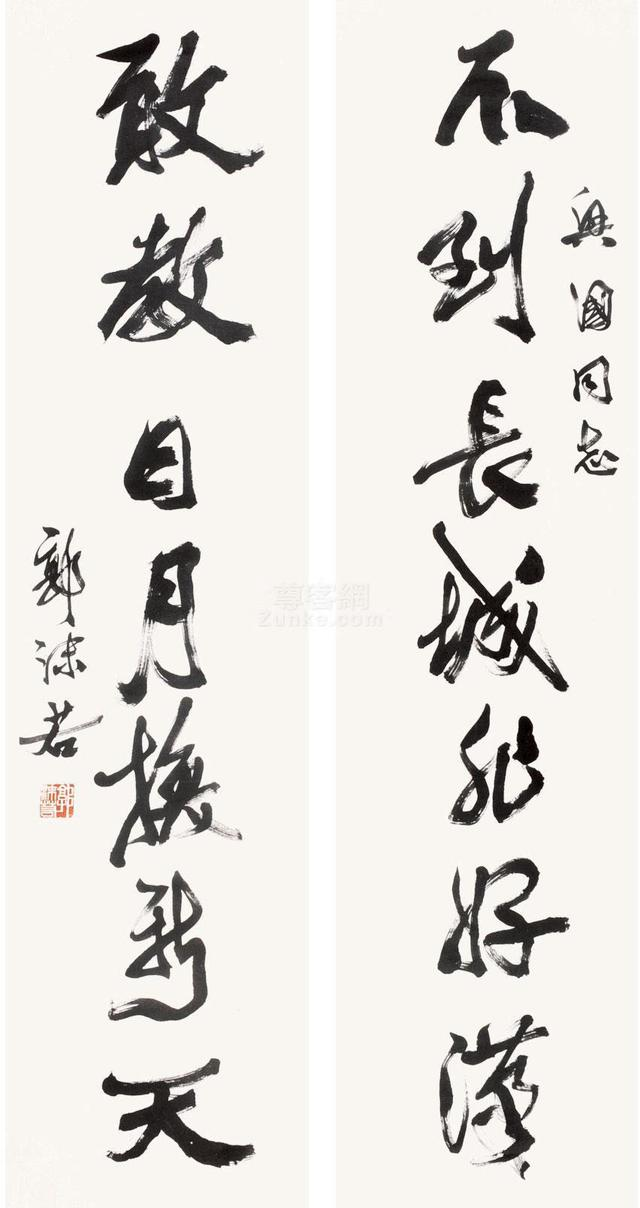 興國同志
不到長城非好漢
敢教日月換新天
郭沫若
郭沫若
尊客網
Zunke.com